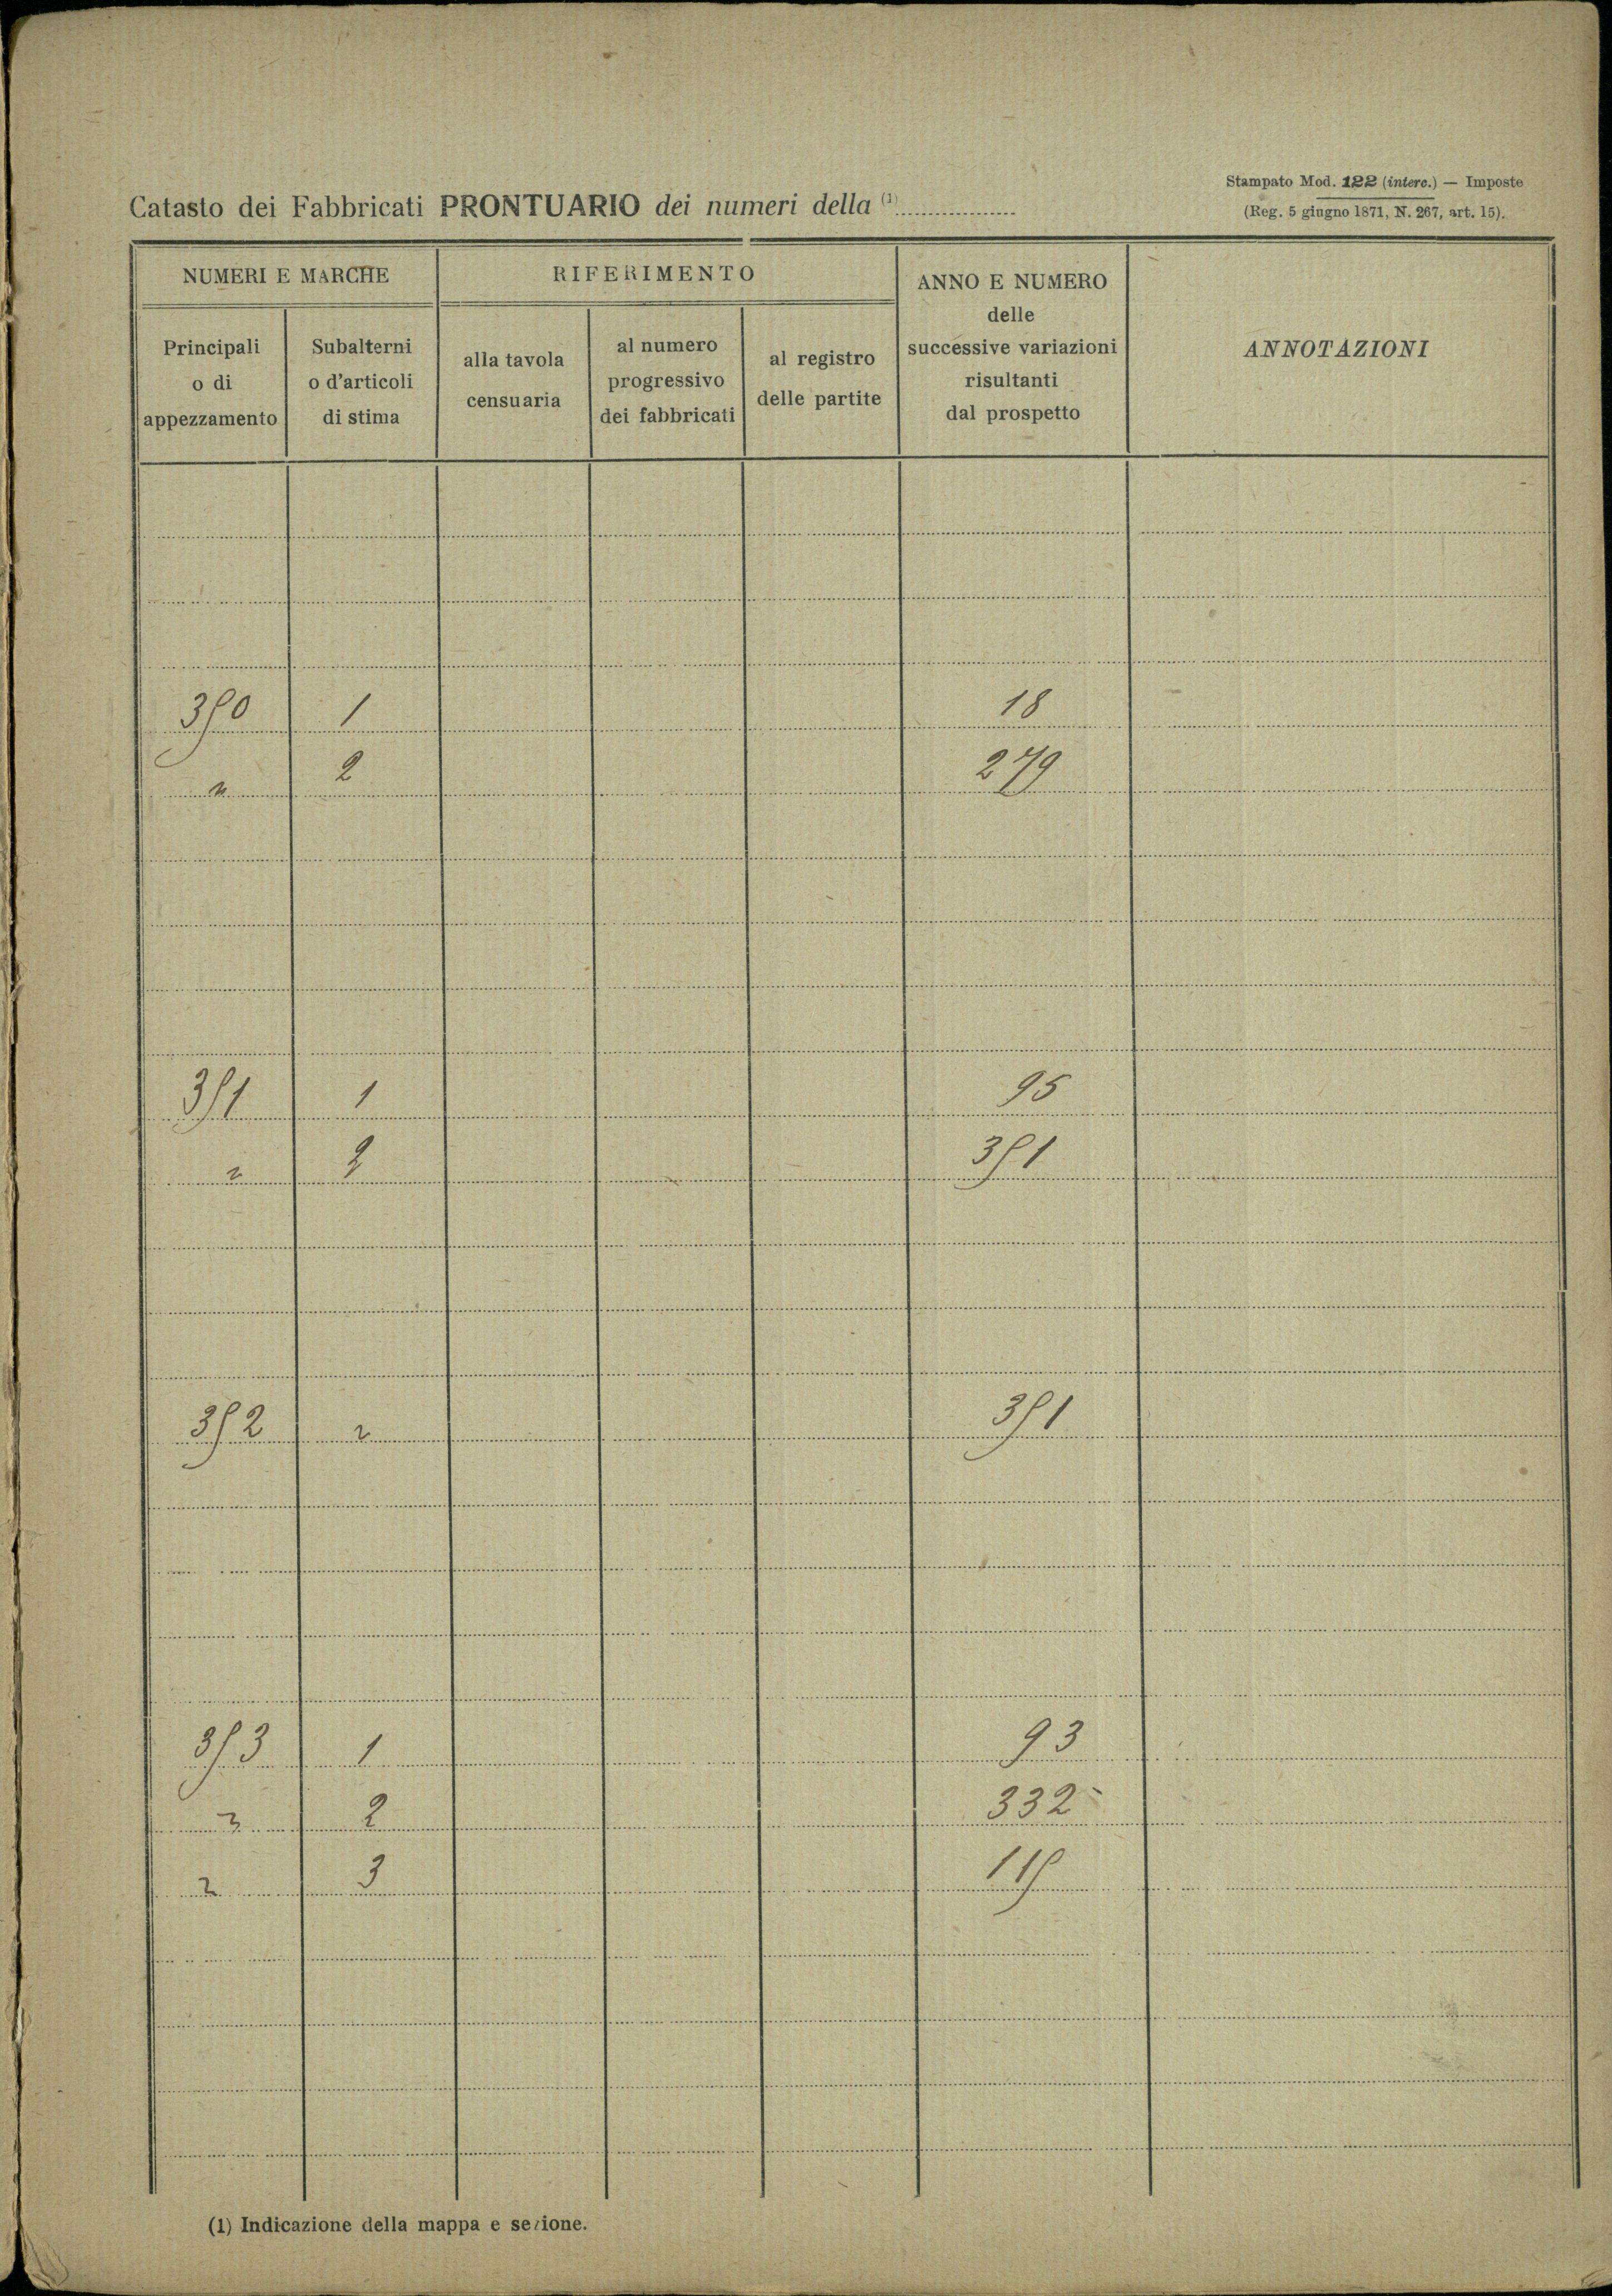 Stampato Mod. 122 (interc.) — Imposte
(Reg. 5 giugno 1871, N. 267, art. 15).
Catasto dei Fabbricati PRONTUARIO dei numeri della (1)
NUMERI E MARCHE
RIFERIMENTO
ANNO E NUMERO
delle
successive variazioni
risultanti
dal prospetto
ANNOTAZIONI
Principali
o di
appezzamento
Subalterni
o d'articoli
di stima
alla tavola
censuaria
al numero
progressivo
dei fabbricati
al registro
delle partite
350 1 18
" 2 279
351 1 95
" 2 351
352 " 351
353 1 93
" 2 332
" 3 115
(1) Indicazione della mappa e sezione.